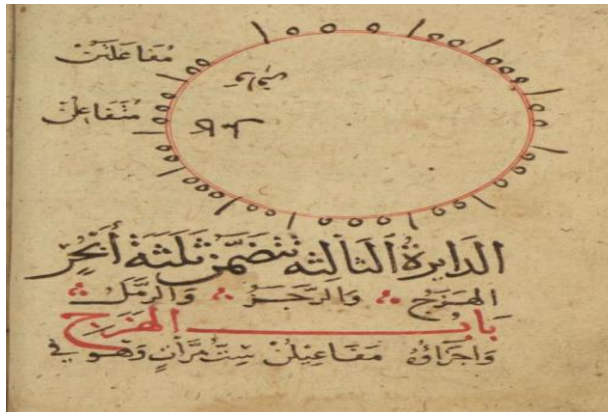 مُفَاعَلَتُنْ
مُتَفَاعِلُنْ
الدَايِرةُ الثَالثة تتضَمَّن ثَلَثَةَ أَبْحُرٍ
الهَزَج والرَّجَز والرَّمَل
بَابُ الهَزَجِ
وَاجزاؤه مَفَاعِيلُنْ سِتُّ مَرَّاتٍ وَهُو في